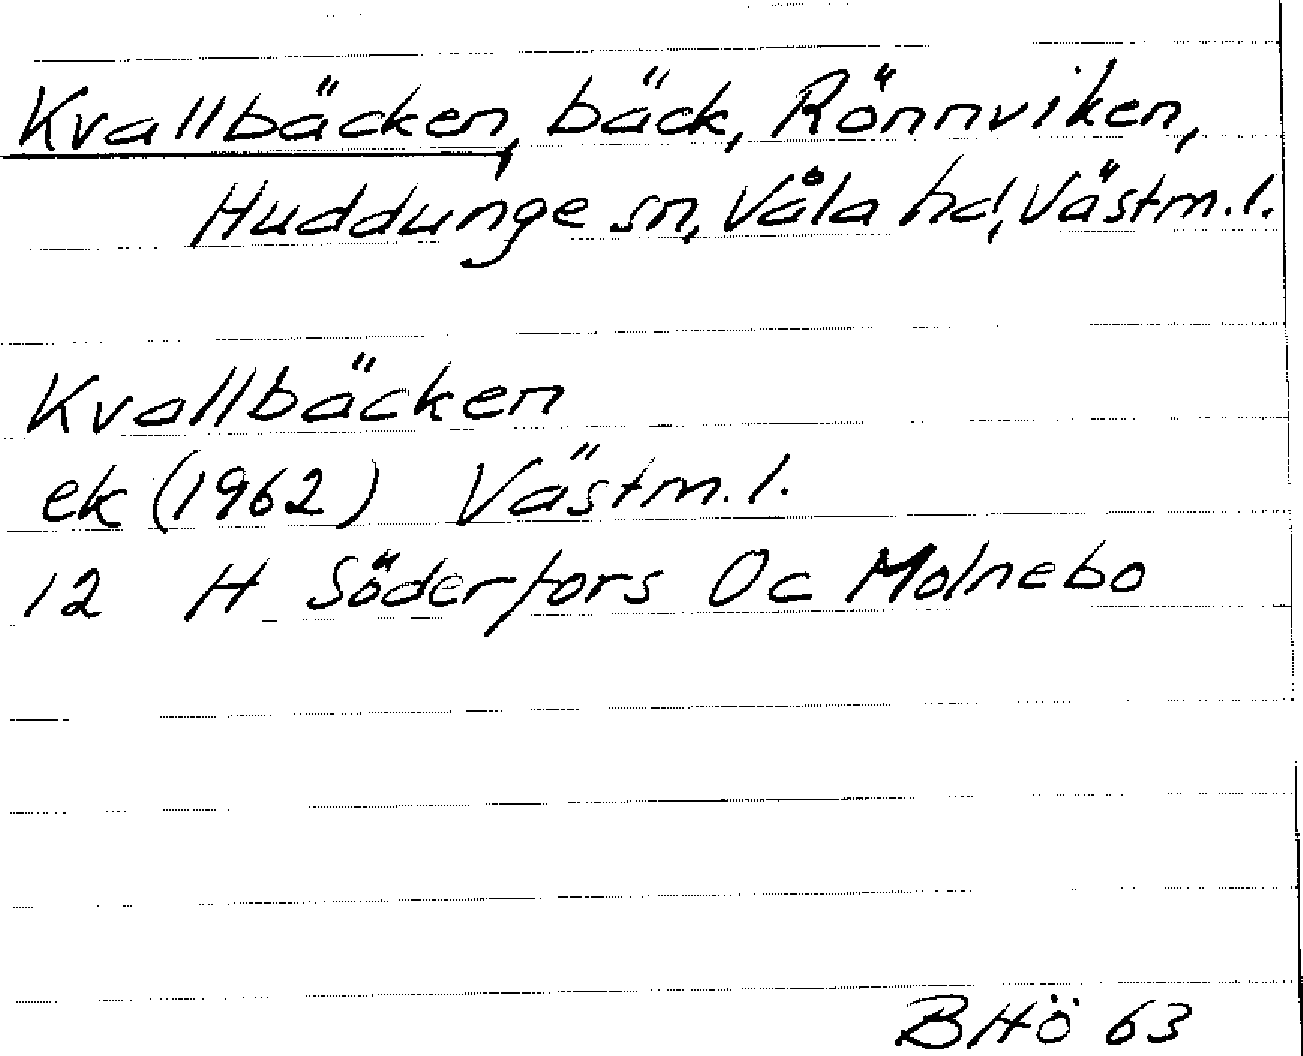 Kvallbäcken, bäck, Rönnviken,
Huddunge sn, Våla hd, Västm.l.
Kvallbäcken
ek (1962) Västm.l.
12 H Söderfors Oc Molnebo
BHö 63